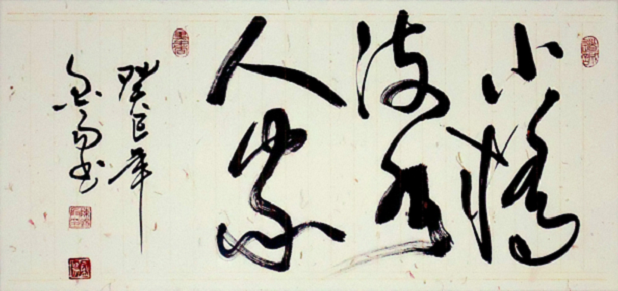 小橋
流水
人家
癸巳年
书